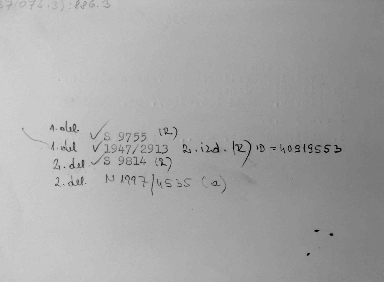 37(076.3):886.3
1. del. ✓ S 9755 (R)
1. del ✓ 1947/2913 2. izd. (R) ID = 40919553
2. del. ✓ S 9814 (R)
2. del. N 1997/4535 (a)